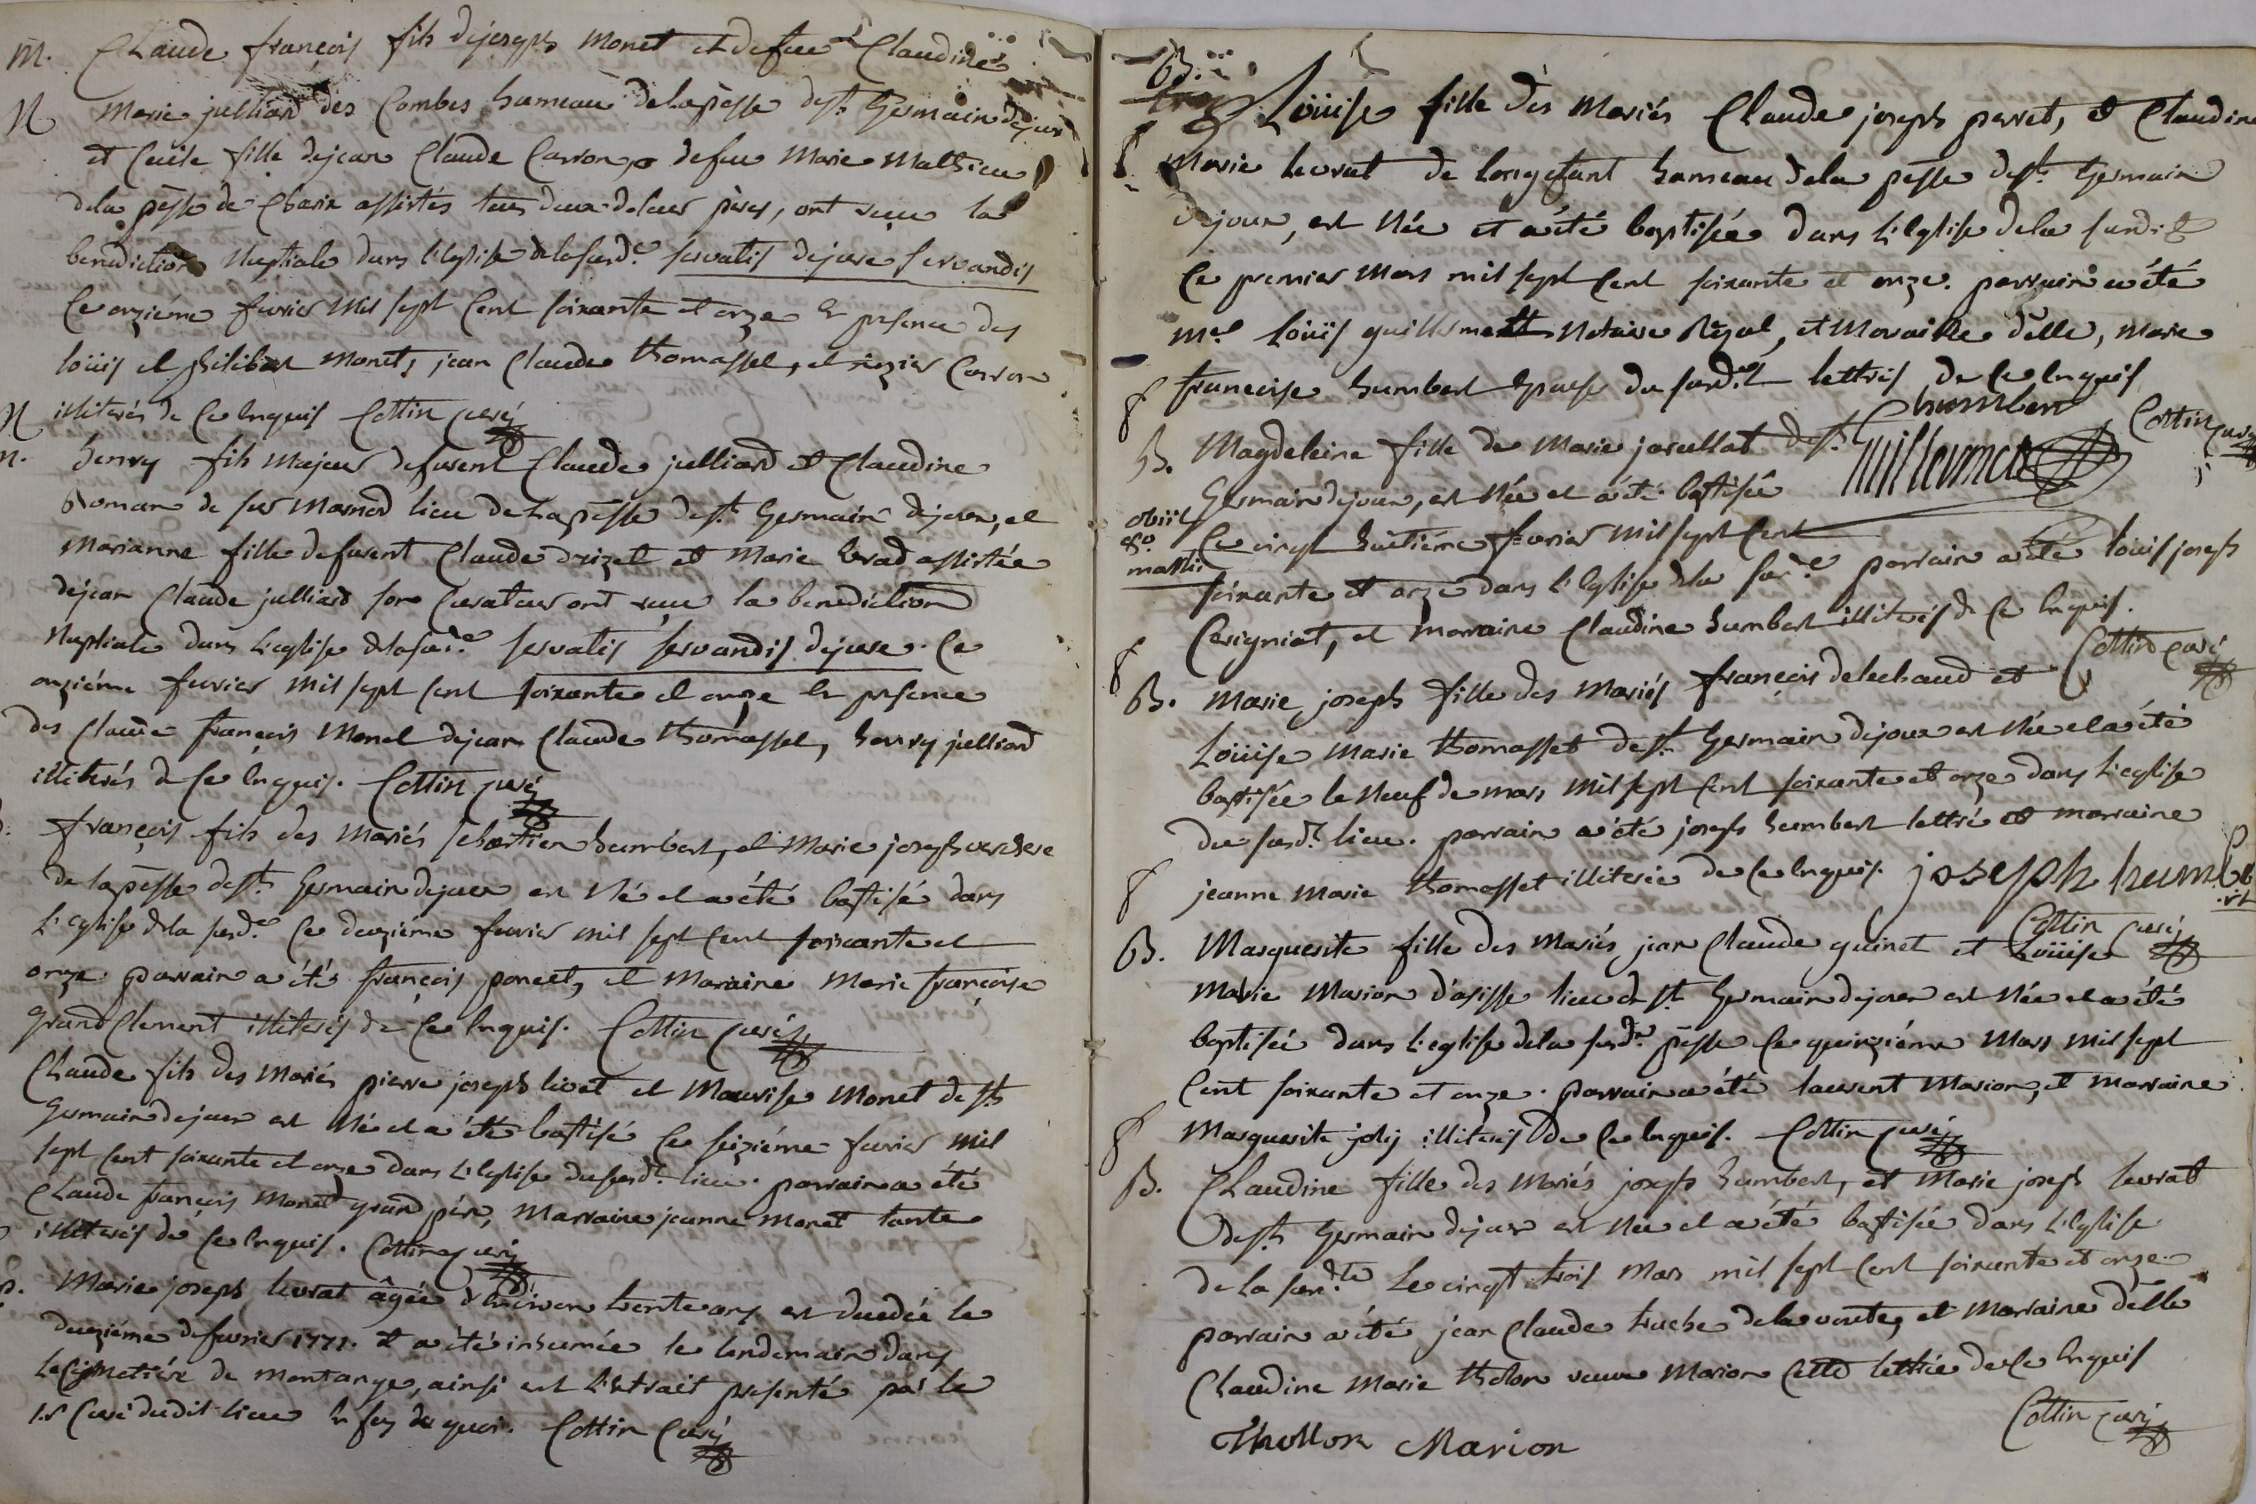 M. Claude françois fils dejoseph Monet et defue Claudine
N Marie julliard des Combes hameau delapsse dest. Germain dejoux
et Cecile fille dejean Claude Carron, & defue Marie Mathieu
dela psse de Charix assistés tous deux deleurs peres, ont reçue la
benediction Nuptiale dans l'eglise delasusde. servatis dejure servandis
Ce onziéme fevrier mil sept Cent soixante et onze En presence des
loüis et philibert Monet, jean Claude thomasset, et Carron
N illiterés de Ce Enquis Cottin curé
M. henry fils Majeur defurent Claude julliard et Claudine
Roman de sur Marnod lieu de la psse dest. Germain dejoux, et
Marianne fille defurent Claude et Marie assistée
dejean Claude julliard son Curateur ont reçue la benediction
Nuptiale dans l'eglise delasusde. servatis servandis dejure. Ce
onziéme fevrier mil sept Cent soixante et onze En presence
des Claude françois Monet dejean Claude thomasset, henry julliard
illiterés de Ce Enquis. Cottin curé
françois fils des Mariés sebastien humbert, et Marie joseph
de la psse dest. Germain dejoux est Né et a été baptisé dans
l'eglise dela susde. Ce douziéme fevrier mil sept Cent soixante et
onze. parrain a été françois poncet, et Maraine Marie françoise
grandClement illiterés de Ce Enquis. Cottin curé
Claude fils des Mariés pierre joseph livet et Maurise Monet dest.
Germain dejoux est Né et a été baptisé Ce seiziéme fevrier mil
sept Cent soixante et onze dans l'Eglise dususdt. lieu. parrain a été
Claude françois Monet grand pére, Marraine jeanne Monet tante
illiterés de Ce Enquis. Cottin curé
Marie joseph levrat âgée d'Environ trente ans est decedée le
deuziéme defevrier 1771. et a été inhumée le lendemain dans
le Cimetiére de montange, ainsi est l'Extrait presenté par le
sr Curé dudit lieu En foy de quoi. Cottin Curé
B.
Loüise fille des Mariés Claude joseph perret, et Claudine
Marie levrat de longefant hameau dela psse dest. Germain
dejoux, est Née et a été baptisée dans l'eglise dela susdite
Ce premier Mars mil sept Cent soixante et onze. parrain a été
me. Loüis guillermet Notaire Royal, et Maraine delle, Marie
francoise humbert Epouse du susdt. lettrés de Ce Enquis
f humbert Cottin curé
B. Magdeleine fille de Marie dest. Guillermet
Germain dejoux, est Née et a été baptisée
obiit Ce vingt huitiéme fevrier mil sept Cent
8o martii soixante et onze dans l'Eglise dela susde. parrain a été loüis joseph
Cerigniat, et Marraine Claudine humbert illiterés de Ce Enquis.
Cottin Curé
B. Marie joseph fille des Mariés françois delechaud et
Loüise Marie thomasset dest. Germain dejoux est Née et a été
baptisée le Neuf de mars mil sept Cent soixante et onze dans l'eglise
du susdt. lieu. parrain a été joseph humbert lettré et marraine
jeanne Marie thomasset illiterée de Ce Enquis. joseph humbert
Cottin curé
B. Marguerite fille des Mariés jean Claude guinet et Loüise
Marie Marion d'asisse lieu de st. Germain dejoux est Née et a été
baptisée dans l'eglise dela susde. psse Ce quinziéme Mars mil sept
Cent soixante et onze. parrain a été laurent Marion, et marraine
Marguerite joly illiterés de Ce Enquis. Cottin curé
B. Claudine fille des Mariés joseph humbert, et Marie joseph levrat
dest. Germain dejoux est Née et a été baptisée dans l'Eglise
de la susdte. Le vingt trois Mars mil sept Cent soixante et onze.
parrain a été jean Claude delavoute, et Marraine delle
Claudine Marie tholon veuve Marion Cette lettrée de Ce Enquis
Cottin curé
Thollon Marion